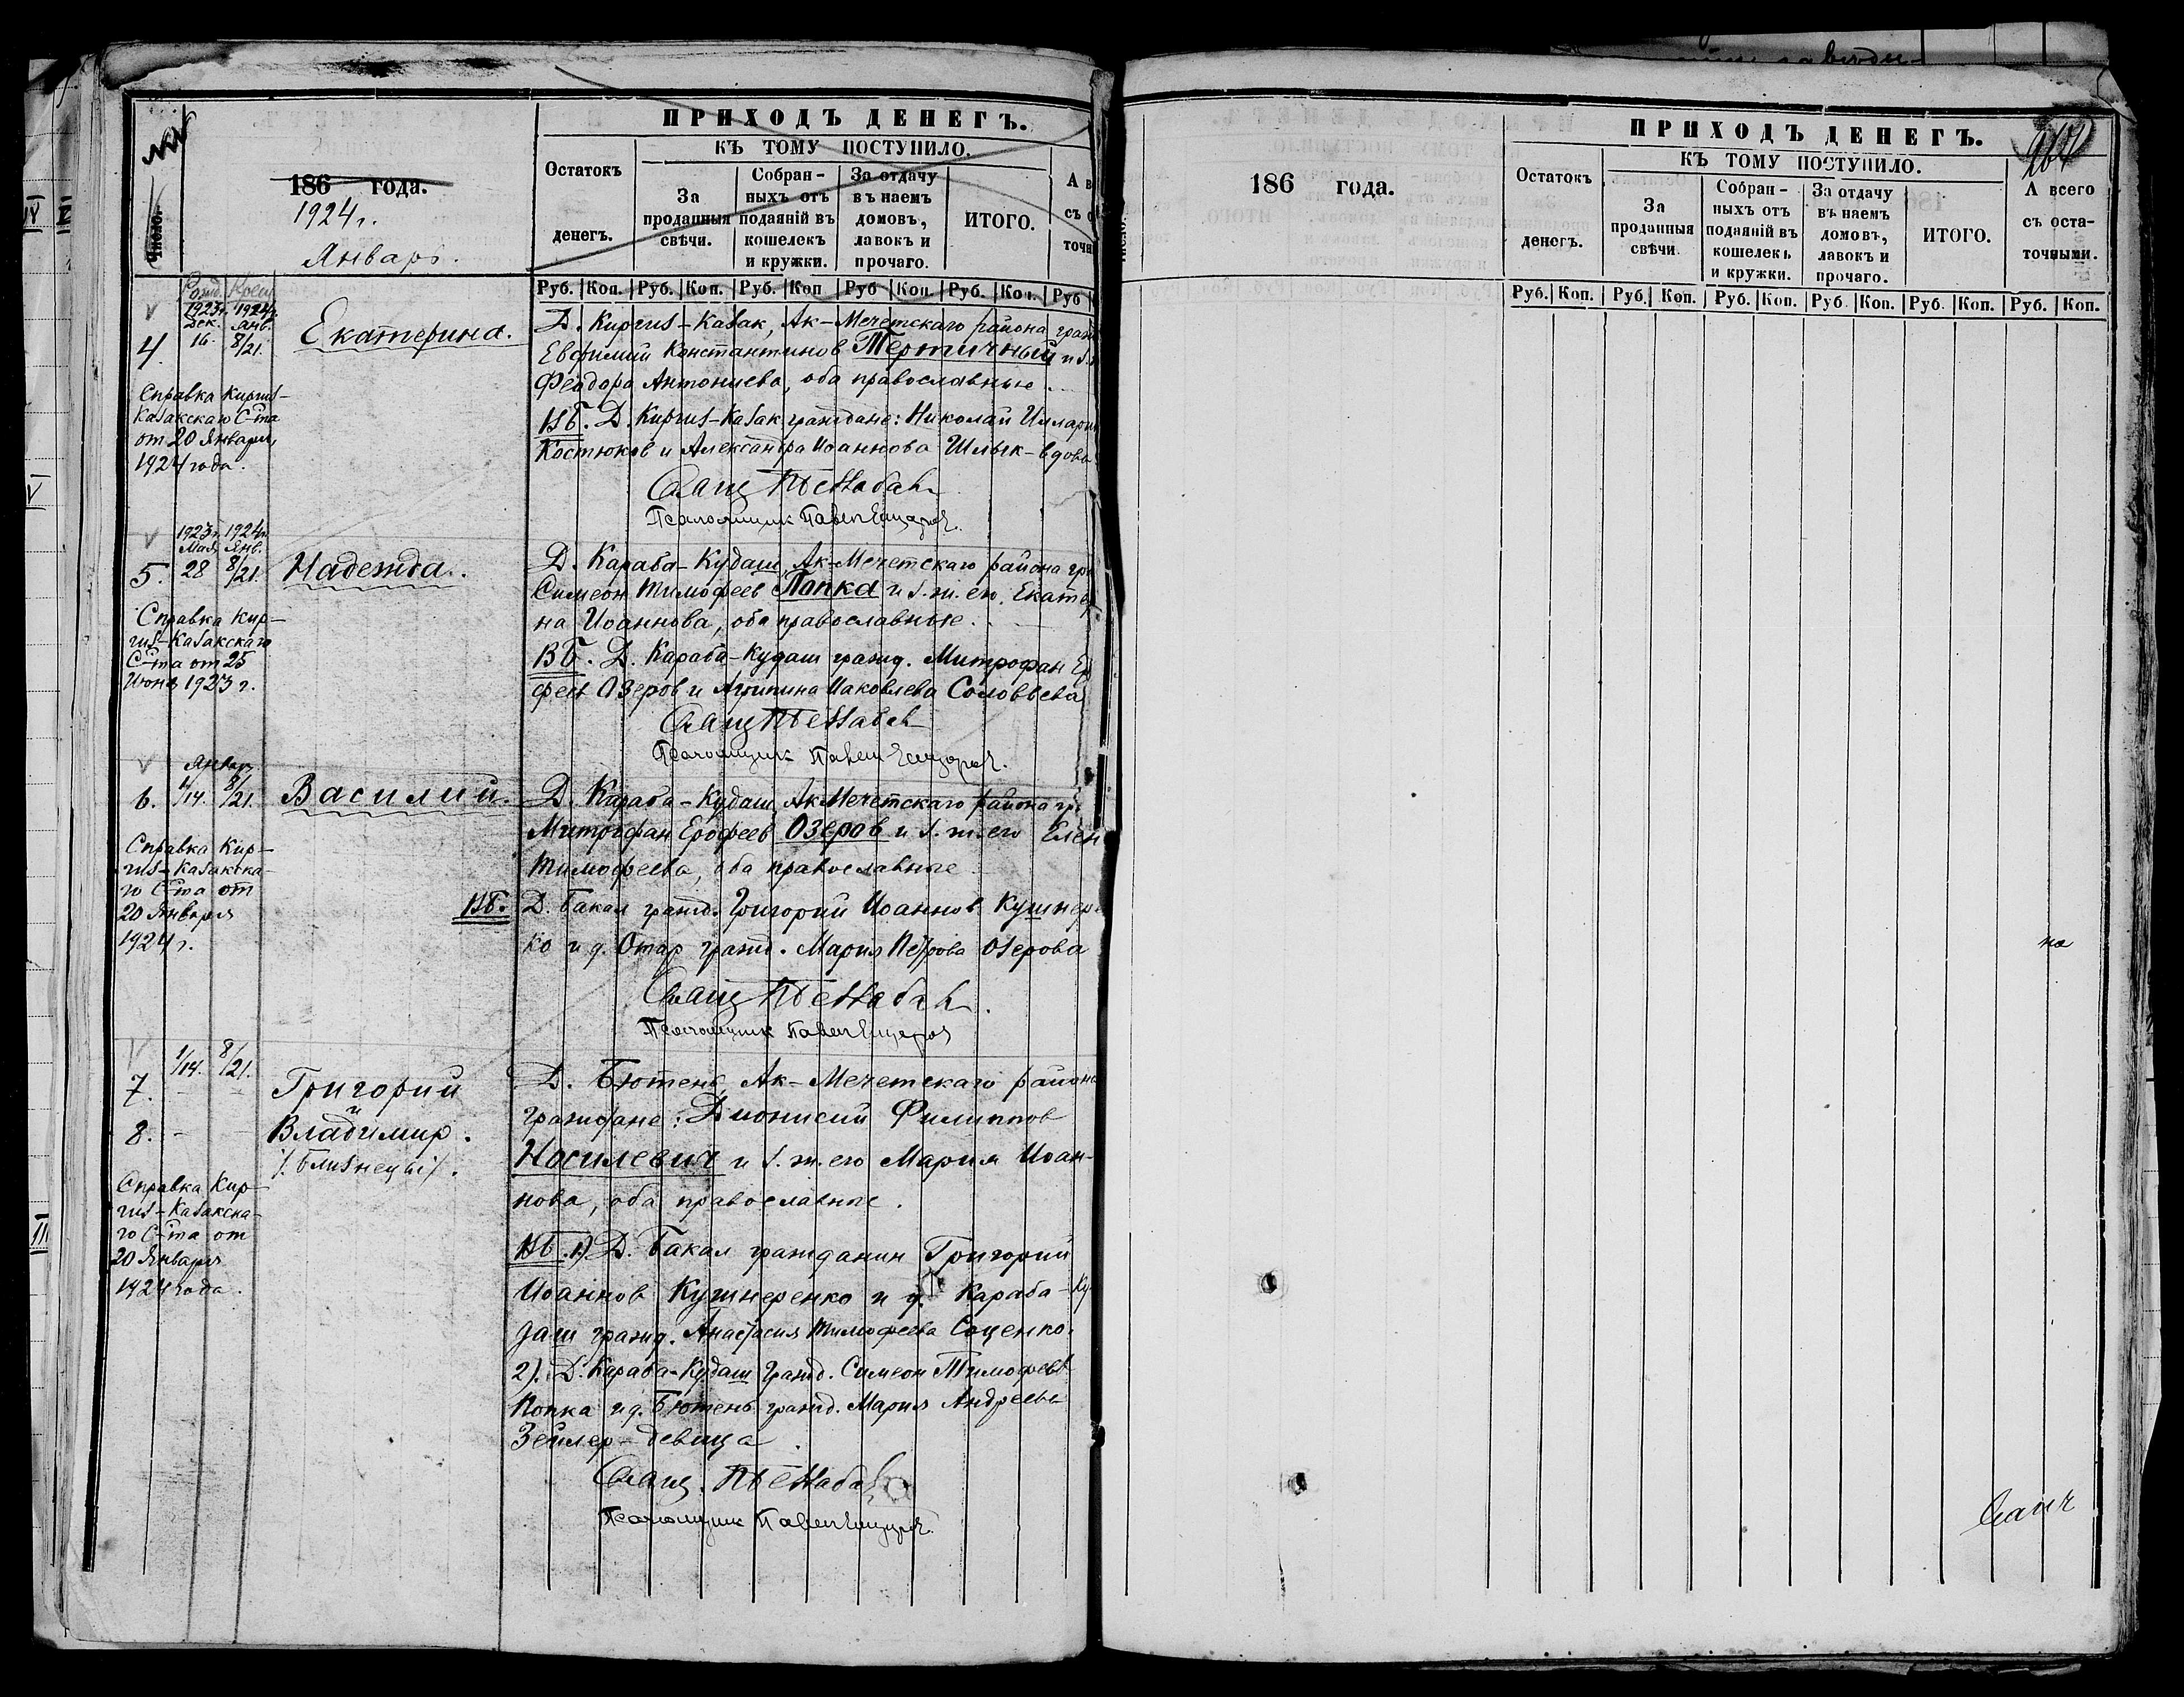 NN
Число.
186 года.
1924 г.
Январь.
ПРИХОДЪ ДЕНЕГЪ.
Остатокъ
денегъ.
КЪ ТОМУ ПОСТУПИЛО.
За
проданныя
свѣчи.
Собран-
ныхъ отъ
подаяній въ
кошелекъ
и кружки.
За отдачу
въ наемъ
домовъ,
лавокъ и
прочаго.
ИТОГО.
А в
съ о
точн
Руб. Коп. Руб. Коп. Руб. Коп Руб Коп. Руб. Коп. Руб
Рожд. Крещ.
1923 г. 1924 г.
Дек. Янв.
4. 16. 8/21.
Екатерина.
Справка Киргиз-
Казакскаго С-та
от 20 Января,
1924 года.
Д. Киргиз-Казак, Ак-Мечетскаго района граж
Евфимий Константинов Терпичный и з.
Феодора Антониева, оба православные.
НБ. Д. Киргиз-Казак граждане: Николай Иллари
Костюков и Александра Иоаннова Шлык-вдова
Псаломщик Павел
1923 г. 1924 г.
Мая Янв.
5. 28 8/21.
Надежда.
Справка Кир-
гиз-Казакскаго
С-та от 25
Июня 1923 г.
Д. Караба-Кудаш, Ак-Мечетскаго района гр
Симеон Тимофеев Попка и з. ж. его Екатер
на Иоаннова, оба православные.
НБ. Д. Караба-Кудаш гражд. Митрофан Ер
феев Озеров и Агрипина Иаковлева Соловьева
Псаломщик Павел
Январь
6. 1/14. 8/21.
Василий.
Справка Кир-
гиз-Казакска-
го С-та от
20 Января
1924 г.
Д. Караба-Кудаш, Ак-Мечетскаго района гр
Митрофан Ерофеев Озеров и з. ж. его Елен
Тимофеева, оба православные
НБ. Д. Бакал гражд. Григорий Иоаннов Кушнерен
ко и д. Отар гражд. Мария Петрова Озерова
Псаломщик Павел
7. 1/14. 8/21.
Григорий
и
8. - -
Владимир.
/. близнецы /.
Справка Кир-
гиз-Казакска-
го С-та от
20 Января
1924 года.
Д. Бютень, Ак-Мечетскаго района
граждане: Дионисий Филиппов
Носилевич и з. ж. его Мария Иоан-
нова, оба православные.
НБ. 1). Д. Бакал гражданин Григорий
Иоаннов Кушнеренко и д. Караба-Ку
даш гражд. Анастасия Тимофеева Соценко.
2). Д. Караба-Кудаш гражд. Симеон Тимофеев
Попка и д. Бютень гражд. Мария Андреева
Зейлер-девица
Псаломщик Павел
186 года.
ПРИХОДЪ ДЕНЕГЪ.
Остатокъ
денегъ.
КЪ ТОМУ ПОСТУПИЛО.
За
проданныя
свѣчи.
Собран-
ныхъ отъ
подаяній въ
кошелекъ
и кружки.
За отдачу
въ наемъ
домовъ,
лавокъ и
прочаго.
ИТОГО.
А всего
съ оста-
точными.
Руб. Коп. Руб. Коп. Руб. Коп. Руб. Коп. Руб. Коп. Руб. Коп.
на